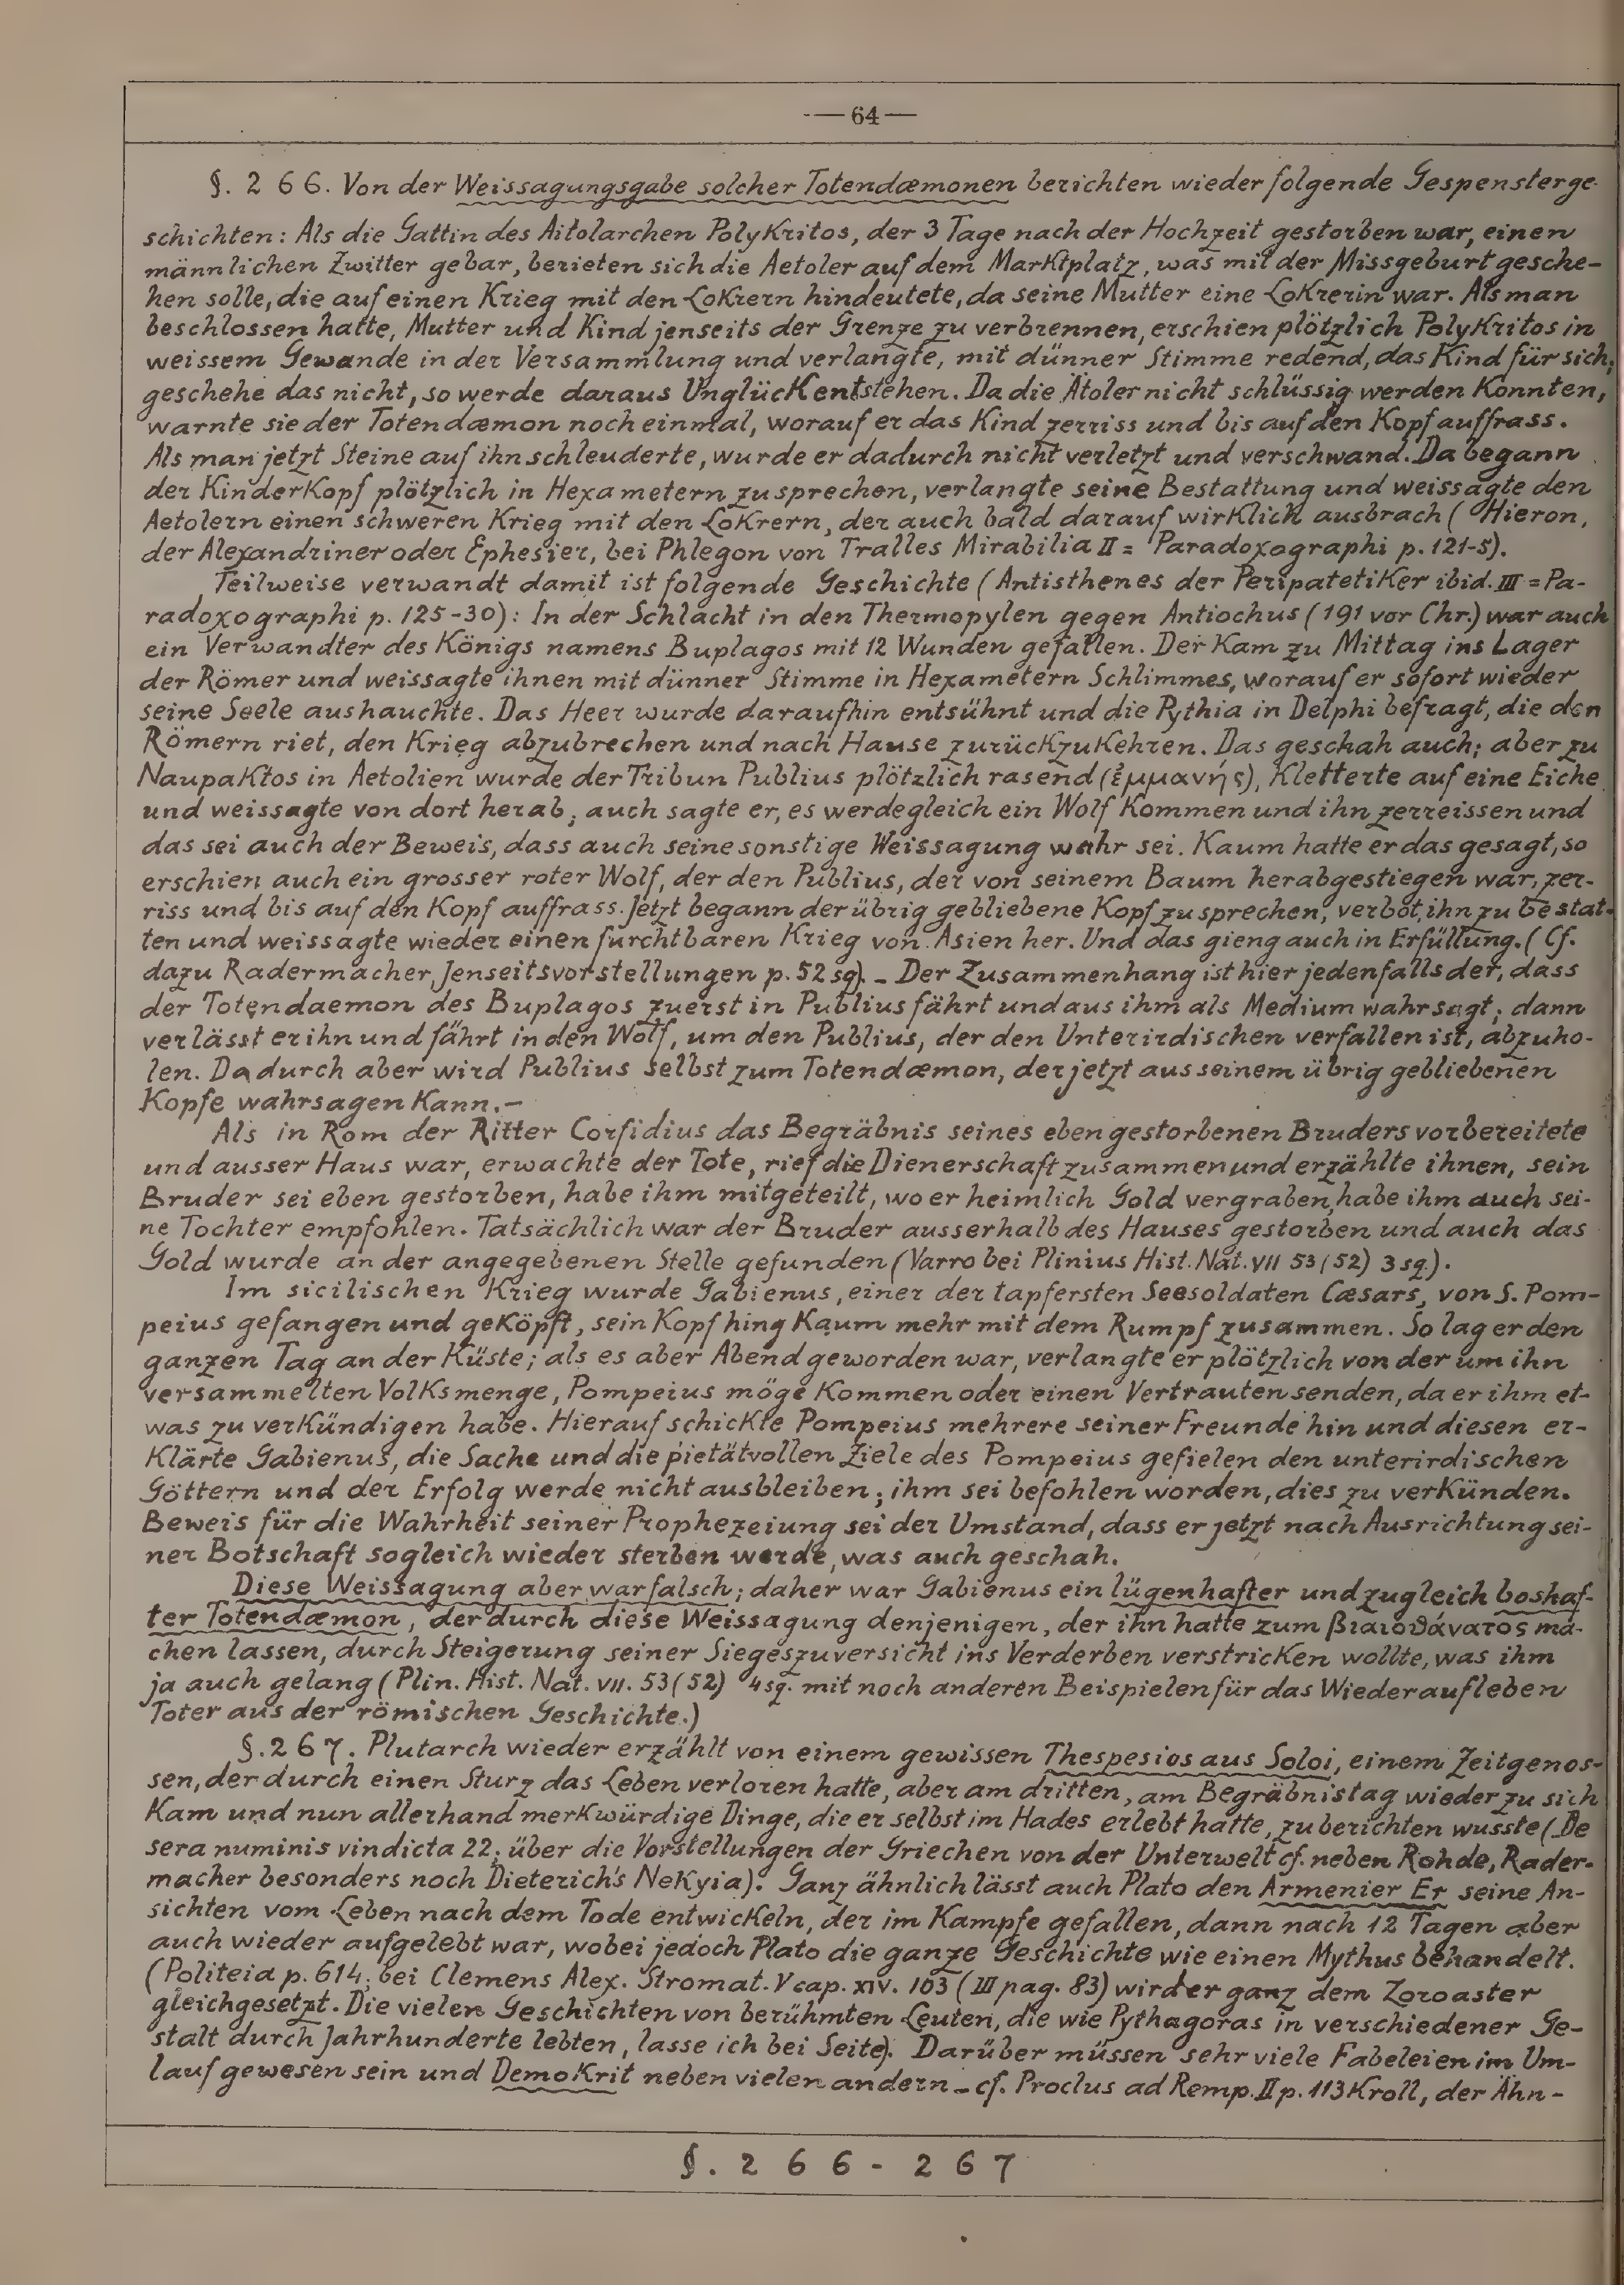 — 64 —
§. 2 6 6. Von der Weissagungsgabe solcher Totendæmonen berichten wieder folgende Gespensterge-
schichten: Als die Gattin des Aitolarchen Polykritos, der 3 Tage nach der Hochzeit gestorben war, einen
männlichen Zwitter gebar, berieten sich die Aetoler auf dem Marktplatz, was mit der Missgeburt gesche-
hen solle, die auf einen Krieg mit den Lokrern hindeutete, da seine Mutter eine Lokrerin war. Als man
beschlossen hatte, Mutter und Kind jenseits der Grenze zu verbrennen, erschien plötzlich Polykritos in
weissem Gewande in der Versammlung und verlangte, mit dünner Stimme redend, das Kind für sich;
geschehe das nicht, so werde daraus Unglück entstehen. Da die Ätoler nicht schlüssig werden konnten,
warnte sie der Totendæmon noch einmal, worauf er das Kind zerriss und bis auf den Kopf auffrass.
Als man jetzt Steine auf ihn schleuderte, wurde er dadurch nicht verletzt und verschwand. Da begann
der Kinderkopf plötzlich in Hexametern zu sprechen, verlangte seine Bestattung und weissagte den
Aetolern einen schweren Krieg mit den Lokrern, der auch bald darauf wirklich ausbrach ( Hieron,
der Alexandriner oder Ephesier, bei Phlegon von Tralles Mirabilia II = Paradoxographi p. 121-5).
Teilweise verwandt damit ist folgende Geschichte (Antisthenes der Peripatetiker ibid. III = Pa-
radoxographi p. 125-30): In der Schlacht in den Thermopylen gegen Antiochus (191 vor Chr.) war auch
ein Verwandter des Königs namens Buplagos mit 12 Wunden gefallen. Der kam zu Mittag ins Lager
der Römer und weissagte ihnen mit dünner Stimme in Hexametern Schlimmes, worauf er sofort wieder
seine Seele aushauchte. Das Heer wurde daraufhin entsühnt und die Pythia in Delphi befragt, die den
Römern riet, den Krieg abzubrechen und nach Hause zurückzukehren. Das geschah auch; aber zu
Naupaktos in Aetolien wurde der Tribun Publius plötzlich rasend (ἐμμανής), kletterte auf eine Eiche
und weissagte von dort herab; auch sagte er, es werde gleich ein Wolf kommen und ihn zerreissen und
das sei auch der Beweis, dass auch seine sonstige Weissagung wahr sei. Kaum hatte er das gesagt, so
erschien auch ein grosser roter Wolf, der den Publius, der von seinem Baum herabgestiegen war, zer-
riss und bis auf den Kopf auffrass. Jetzt begann der übrig gebliebene Kopf zu sprechen, verbot, ihn zu bestat-
ten und weissagte wieder einen furchtbaren Krieg von Asien her. Und das gieng auch in Erfüllung. (Cf.
dazu Radermacher, Jenseitsvorstellungen p. 52 sq). - Der Zusammenhang ist hier jedenfalls der, dass
der Totendaemon des Buplagos zuerst in Publius fährt und aus ihm als Medium wahrsagt; dann
verlässt er ihn und fährt in den Wolf, um den Publius, der den Unterirdischen verfallen ist, abzuho-
len. Dadurch aber wird Publius selbst zum Totendæmon, der jetzt aus seinem übrig gebliebenen
Kopfe wahrsagen kann. –
Als in Rom der Ritter Corfidius das Begräbnis seines eben gestorbenen Bruders vorbereitete
und ausser Haus war, erwachte der Tote, rief die Dienerschaft zusammen und erzählte ihnen, sein
Bruder sei eben gestorben, habe ihm mitgeteilt, wo er heimlich Gold vergraben, habe ihm auch sei-
ne Tochter empfohlen. Tatsächlich war der Bruder ausserhalb des Hauses gestorben und auch das
Gold wurde an der angegebenen Stelle gefunden (Varro bei Plinius Hist. Nat. VII 53 (52) 3 sq.).
Im sicilischen Krieg wurde Gabienus, einer der tapfersten Seesoldaten Cæsars, von S. Pom-
peius gefangen und geköpft, sein Kopf hing kaum mehr mit dem Rumpf zusammen. So lag er den
ganzen Tag an der Küste; als es aber Abend geworden war, verlangte er plötzlich von der um ihn
versammelten Volksmenge, Pompeius möge kommen oder einen Vertrauten senden, da er ihm et-
was zu verkündigen habe. Hierauf schickte Pompeius mehrere seiner Freunde hin und diesen er-
klärte Gabienus, die Sache und die pietätvollen Ziele des Pompeius gefielen den unterirdischen
Göttern und der Erfolg werde nicht ausbleiben; ihm sei befohlen worden, dies zu verkünden.
Beweis für die Wahrheit seiner Prophezeiung sei der Umstand, dass er jetzt nach Ausrichtung sei-
ner Botschaft sogleich wieder sterben werde, was auch geschah.
Diese Weissagung aber war falsch; daher war Gabienus ein lügenhafter und zugleich boshaf-
ter Totendæmon, der durch diese Weissagung denjenigen, der ihn hatte zum βιαιοθάνατος ma-
chen lassen, durch Steigerung seiner Siegeszuversicht ins Verderben verstricken wollte, was ihm
ja auch gelang (Plin. Hist. Nat. VII. 53 (52) 4 sq. mit noch anderen Beispielen für das Wiederaufleben
Toter aus der römischen Geschichte.)
§. 2 6 7. Plutarch wieder erzählt von einem gewissen Thespesios aus Soloi, einem Zeitgenos-
sen, der durch einen Sturz das Leben verloren hatte, aber am dritten, am Begräbnistag wieder zu sich
kam und nun allerhand merkwürdige Dinge, die er selbst im Hades erlebt hatte, zu berichten wusste (De
sera numinis vindicta 22; über die Vorstellungen der Griechen von der Unterwelt cf. neben Rohde, Rader-
macher besonders noch Dieterich's Nekyia). Ganz ähnlich lässt auch Plato den Armenier Er seine An-
sichten vom Leben nach dem Tode entwickeln, der im Kampfe gefallen, dann nach 12 Tagen aber
auch wieder aufgelebt war, wobei jedoch Plato die ganze Geschichte wie einen Mythus behandelt.
(Politeia p. 614; bei Clemens Alex. Stromat. V cap. XIV. 103 (III pag. 83) wird er ganz dem Zoroaster
gleichgesetzt. Die vielen Geschichten von berühmten Leuten, die wie Pythagoras in verschiedener Ge-
stalt durch Jahrhunderte lebten, lasse ich bei Seite). Darüber müssen sehr viele Fabeleien im Um-
lauf gewesen sein und Demokrit neben vielen andern - cf. Proclus ad Remp. II p. 113 Kroll, der Ähn-
§. 2 6 6 - 2 6 7